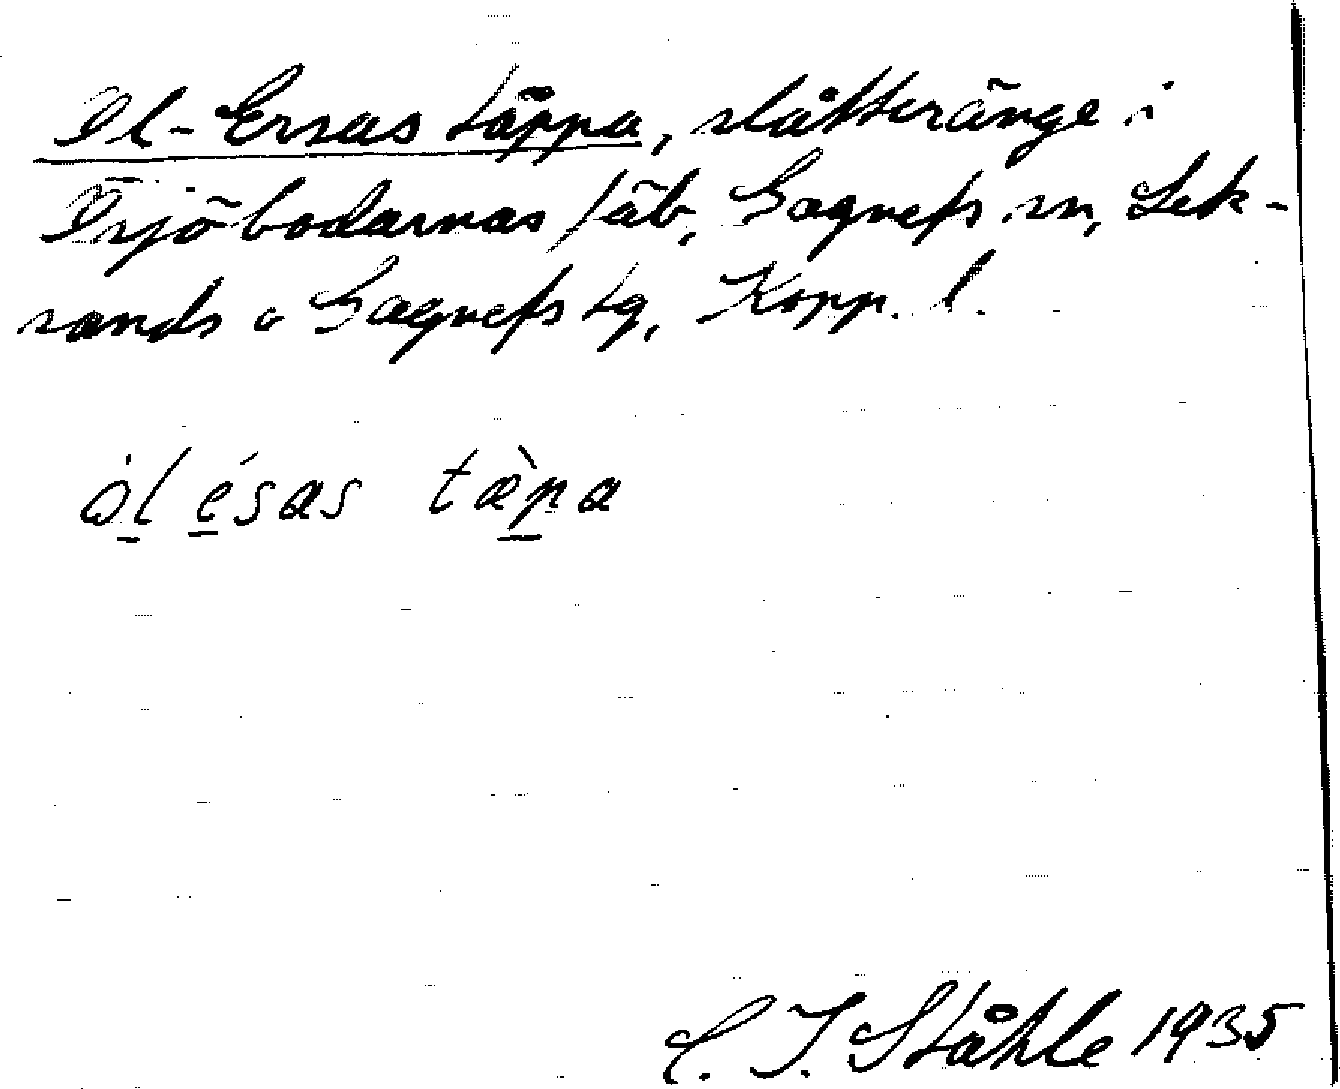 Ol-Ersas täppa, slåtteränge i
Osjöbodarnas fäb, Gagnefs sn, Lek-
sands o Gagnefs tg, Kopp. l.
òl ésas tæ̀pa
C. I. Ståhle 1935